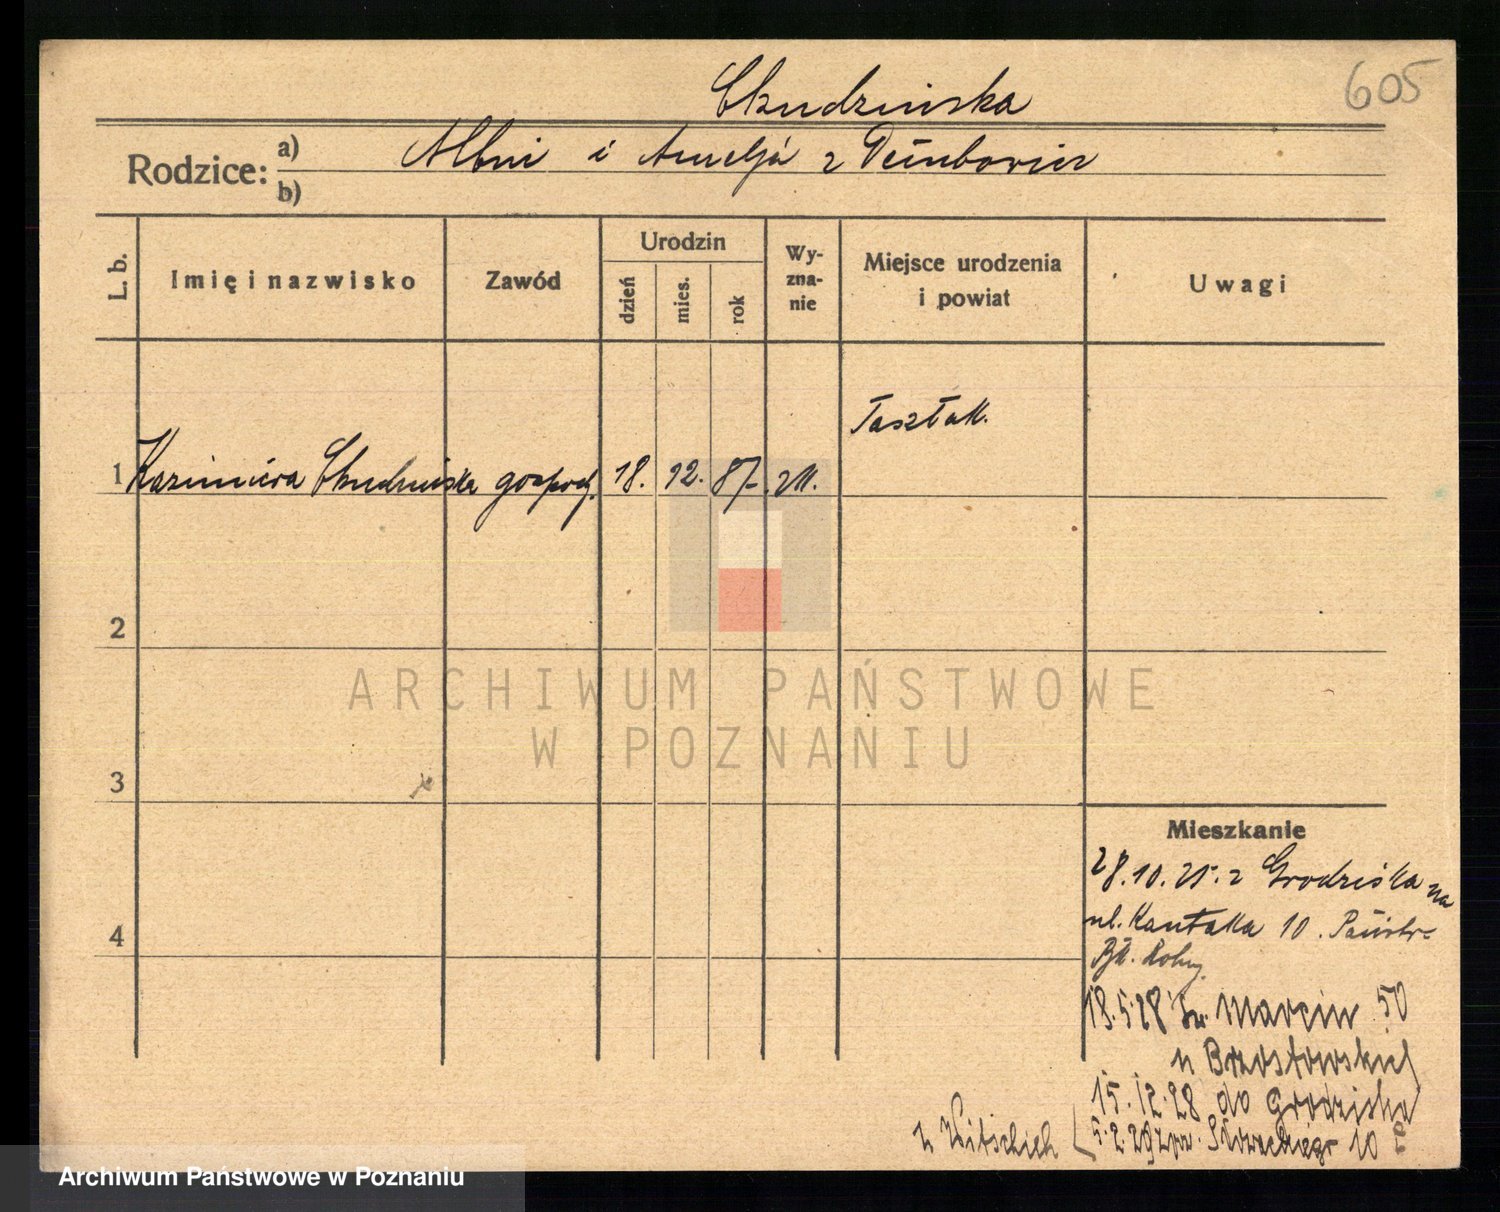 605
Skudzińska
Rodzice: a)
Albin i Amelja z Dembowicz
b)
L. b.
Imię i nazwisko
Zawód
Urodzin
dzień
mies.
rok
Wy-
zna-
nie
Miejsce urodzenia
i powiat
Uwagi
Tasztak.
1 Kazimiera Skudzińska gospod. 18. 12. 87
2
3
4
ARCHIWUM PAŃSTWOWE
W POZNANIU
Mieszkanie
28.10.25. z Grodziska na
ul. Kantaka 10.
18.5.28 Św. Marcin 50
u Brzostowskich
15.12.28 do Grodziska
5.2.29 Słowackiego 10
Archiwum Państwowe w Poznaniu